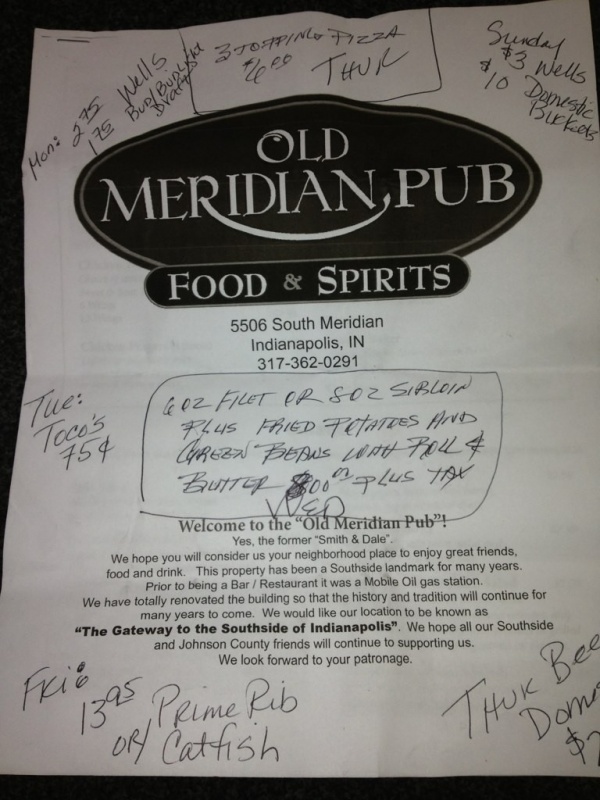 3 TOPPING PIZZA
$6.00
THUR
Sunday
$3 Wells
$10 Domestic
Buckets
Mon: 2.75 Wells
1.75 Bud/Bud Light
Drafts
OLD
MERIDIAN PUB
FOOD & SPIRITS
5506 South Meridian
Indianapolis, IN
317-362-0291
Tue:
Toco's
75¢
6 OZ FILET OR 8 OZ SIRLOIN
PLUS FRIED POTATOES AND
GREEN BEANS WITH ROLL &
BUTTER PLUS TAX
WED
Welcome to the "Old Meridian Pub"!
Yes, the former "Smith & Dale".
We hope you will consider us your neighborhood place to enjoy great friends,
food and drink. This property has been a Southside landmark for many years.
Prior to being a Bar / Restaurant it was a Mobile Oil gas station.
We have totally renovated the building so that the history and tradition will continue for
many years to come. We would like our location to be known as
"The Gateway to the Southside of Indianapolis". We hope all our Southside
and Johnson County friends will continue to supporting us.
We look forward to your patronage.
Fri:
13.95 Prime Rib
OR/ Catfish
THUR Bee
Dome
$